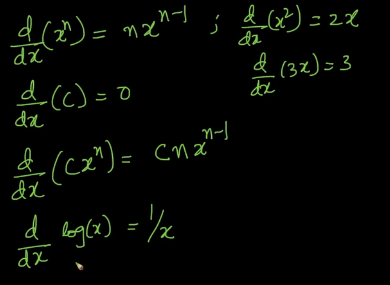 d/dx (xⁿ) = nxⁿ⁻¹ ; d/dx (x²) = 2x
d/dx (3x) = 3
d/dx (C) = 0
d/dx (Cxⁿ) = Cnxⁿ⁻¹
d/dx log(x) = 1/x